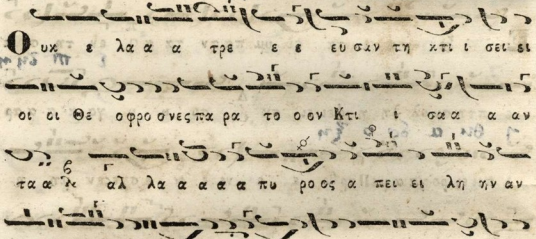 Ουκ ε λα α α τρε ε ε ευ σαν τη κτι ι σει ει
οι οι Θε ο φρο ο νες πα ρα το ο ον Κτι ι σα α α αν
τα α λ αλ λα α α α α πυ ρο ος α πει ει λη ην αν